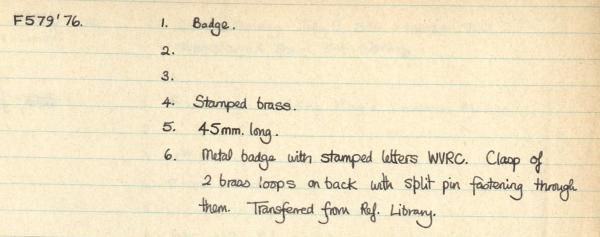 F579'76. 1. Badge.
2.
3.
4. Stamped brass.
5. 45mm. long.
6. Metal badge with stamped letters WVRC. Clasp of
2 brass loops on back with split pin fastening through
them. Transferred from Ref. Library.